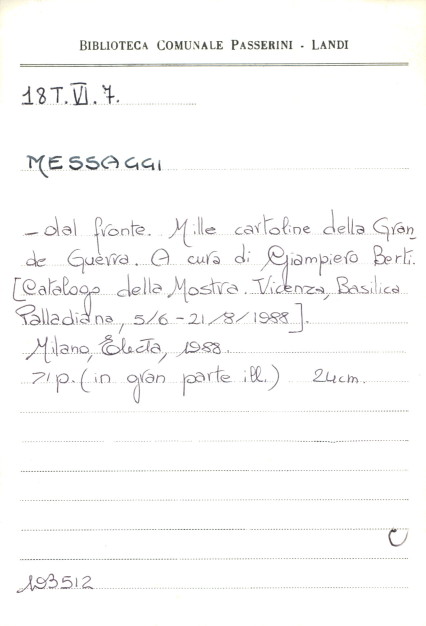 BIBLIOTECA COMUNALE PASSERINI - LANDI
18T.VI.7.
MESSAGGI
- dal fronte. Mille cartoline della Gran
de Guerra. A cura di Giampiero Berti.
[Catalogo della Mostra. Vicenza, Basilica
Palladiana, 5/6 - 21/8/1988].
Milano, Electa, 1988.
71 p. (in gran parte ill.) 24 cm.
C
193512